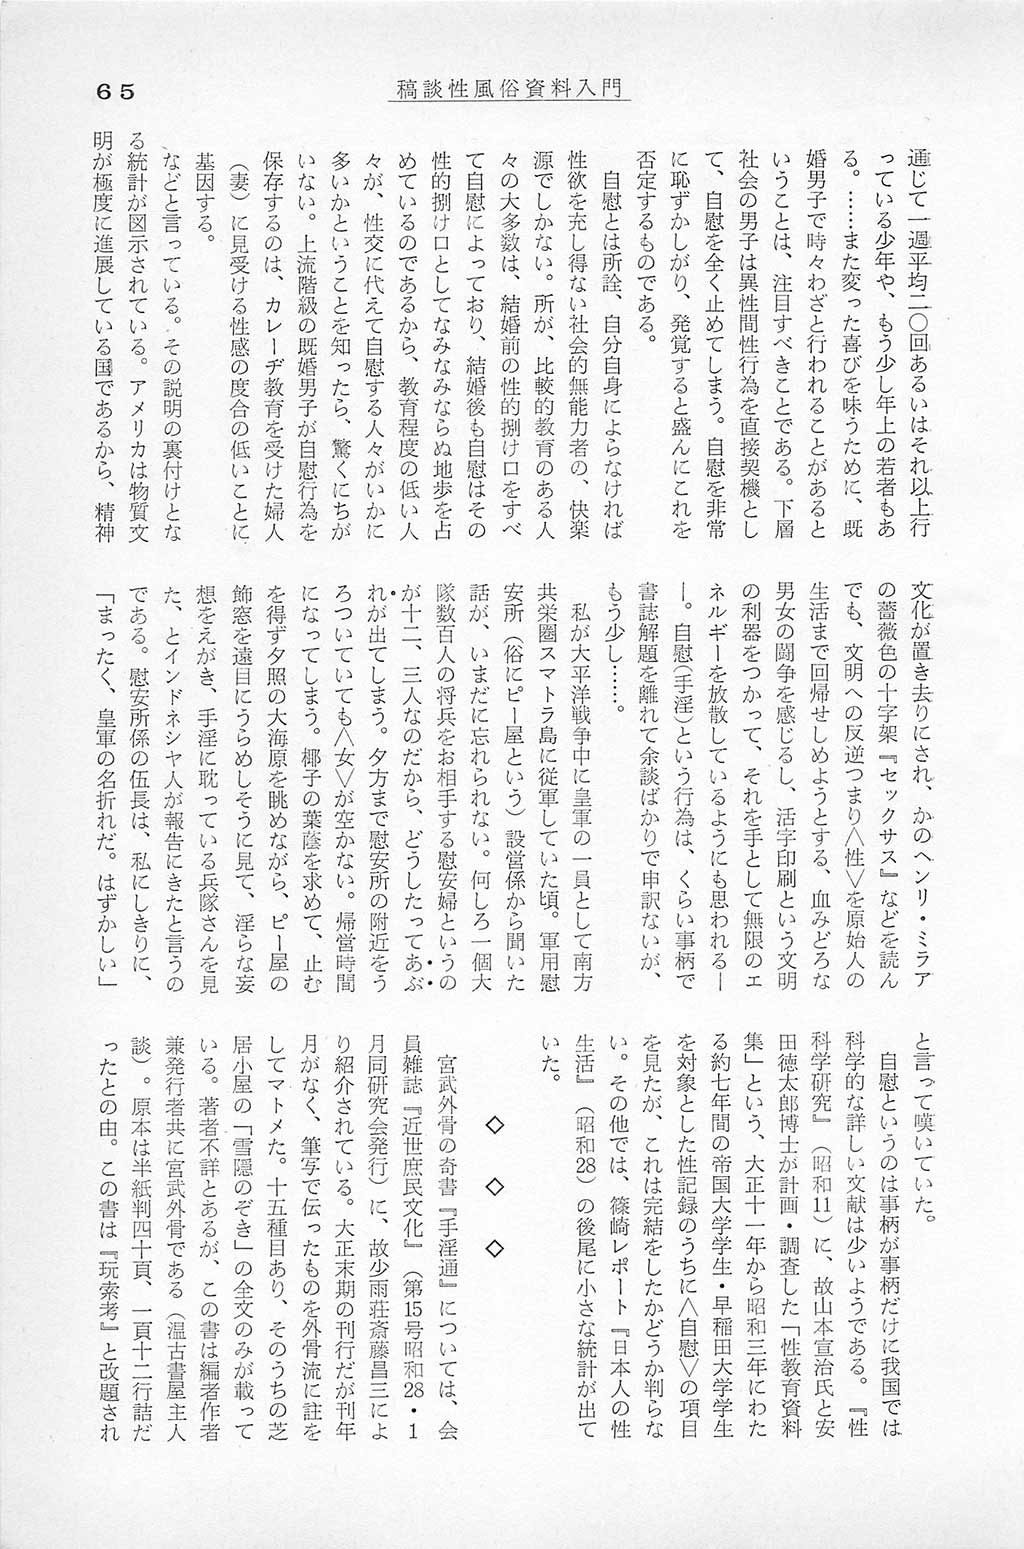 65
稿談性風俗資料入門
通じて一週平均二〇回あるいはそれ以上行
っている少年や、もう少し年上の若者もあ
る。……また変った喜びを味うために、既
婚男子で時々わざと行われることがあると
いうことは、注目すべきことである。下層
社会の男子は異性間性行為を直接契機とし
て、自慰を全く止めてしまう。自慰を非常
に恥ずかしがり、発覚すると盛んにこれを
否定するものである。
自慰とは所詮、自分自身によらなければ
性欲を充し得ない社会的無能力者の、快楽
源でしかない。所が、比較的教育のある人
々の大多数は、結婚前の性的捌け口をすべ
て自慰によっており、結婚後も自慰はその
性的捌け口としてなみなみならぬ地歩を占
めているのであるから、教育程度の低い人
々が、性交に代えて自慰する人々がいかに
多いかということを知ったら、驚くにちが
いない。上流階級の既婚男子が自慰行為を
保存するのは、カレーヂ教育を受けた婦人
（妻）に見受ける性感の度合の低いことに
基因する。
などと言っている。その説明の裏付けとな
る統計が図示されている。アメリカは物質文
明が極度に進展している国であるから、精神
文化が置き去りにされ、かのヘンリ・ミラア
の薔薇色の十字架『セックサス』などを読ん
でも、文明への反逆つまり＜性＞を原始人の
生活まで回帰せしめようとする、血みどろな
男女の闘争を感じるし、活字印刷という文明
の利器をつかって、それを手として無限のエ
ネルギーを放散しているようにも思われる―
―。自慰（手淫）という行為は、くらい事柄で
書誌解題を離れて余談ばかりで申訳ないが、
もう少し……。
私が大平洋戦争中に皇軍の一員として南方
共栄圏スマトラ島に従軍していた頃。軍用慰
安所（俗にピー屋という）設営係から聞いた
話が、いまだに忘れられない。何しろ一個大
隊数百人の将兵をお相手する慰安婦というの
が十二、三人なのだから、どうしたってあぶ
れが出てしまう。夕方まで慰安所の附近をう
ろついていても＜女＞が空かない。帰営時間
になってしまう。椰子の葉蔭を求めて、止む
を得ず夕照の大海原を眺めながら、ピー屋の
飾窓を遠目にうらめしそうに見て、淫らな妄
想をえがき、手淫に耽っている兵隊さんを見
た、とインドネシヤ人が報告にきたと言うの
である。慰安所係の伍長は、私にしきりに、
「まったく、皇軍の名折れだ。はずかしい」
と言って嘆いていた。
自慰というのは事柄が事柄だけに我国では
科学的な詳しい文献は少いようである。『性
科学研究』（昭和11）に、故山本宣治氏と安
田徳太郎博士が計画・調査した「性教育資料
集」という、大正十一年から昭和三年にわた
る約七年間の帝国大学学生・早稲田大学学生
を対象とした性記録のうちに＜自慰＞の項目
を見たが、これは完結をしたかどうか判らな
い。その他では、篠崎レポート『日本人の性
生活』（昭和28）の後尾に小さな統計が出て
いた。
◇　◇　◇
宮武外骨の奇書『手淫通』については、会
員雑誌『近世庶民文化』（第15号昭和28・1
月同研究会発行）に、故少雨荘斎藤昌三によ
り紹介されている。大正末期の刊行だが刊年
月がなく、筆写で伝ったものを外骨流に註を
してマトメた。十五種目あり、そのうちの芝
居小屋の「雪隠のぞき」の全文のみが載って
いる。著者不詳とあるが、この書は編者作者
兼発行者共に宮武外骨である（温古書屋主人
談）。原本は半紙判四十頁、一頁十二行詰だ
ったとの由。この書は『玩索考』と改題され